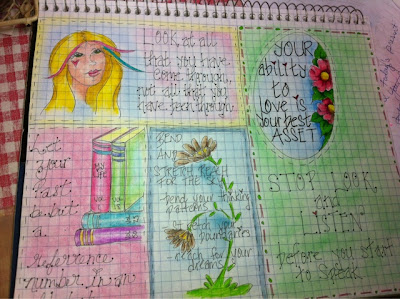 Look at all
that you have
come through,
not all that you
have been through.
YOUR
ability
to
love is
your best
ASSET
Let
your
past
be but
a
reference
number in an
BEND
AND
STRETCH REACH
FOR THE SKY
bend your thinking
patterns
watch your
boundaries
reach for your
dreams
STOP LOOK
and
LISTEN
before you start
to speak